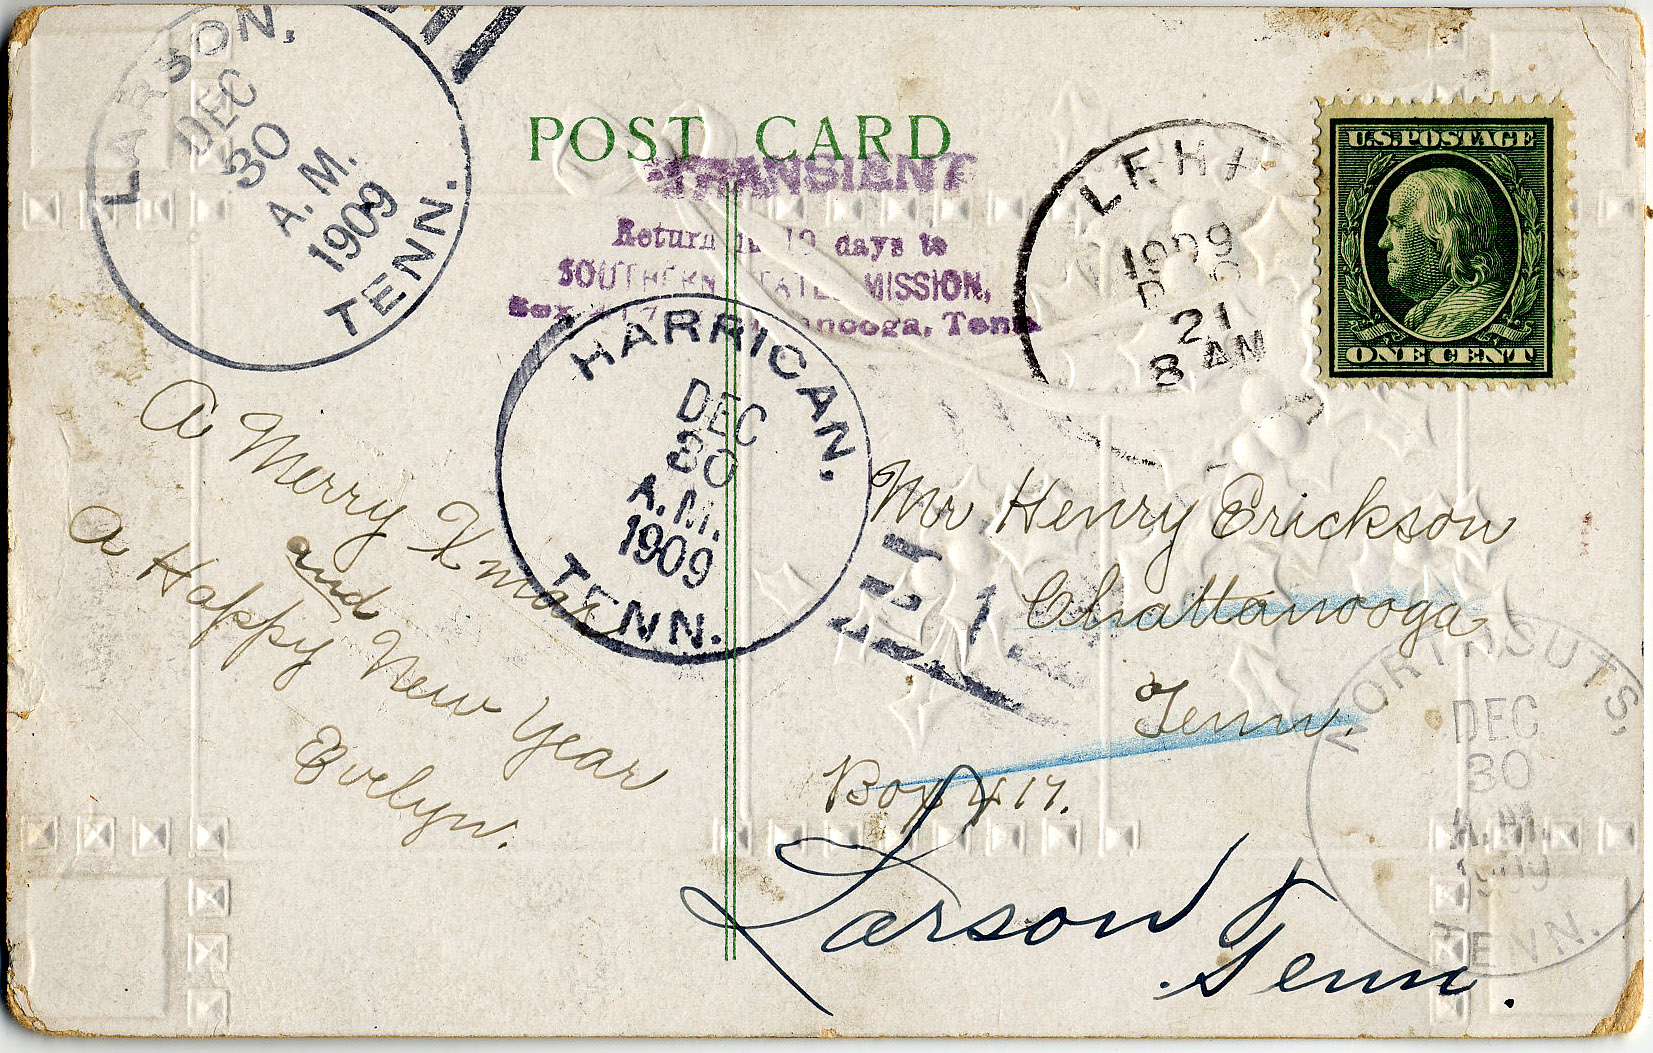 LARSON,
DEC
30
A.M.
1909
TENN.
POST CARD
TRANSIENT
Return in 10 days to
SOUTHERN STATES MISSION,
Box 417 Chattanooga, Tenn.
1909
21
8 AM
U.S.POSTAGE
ONE CENT
HARRICAN,
DEC
30
A.M.
1909
TENN.
1
A Merry Xmas
and
a Happy New Year
Evelyn.
Mr Henry Erickson
Chattanooga
Tenn.
Box 417.
Larson
Tenn.
NORTHCUTS,
DEC
30
A.M.
1909
TENN.